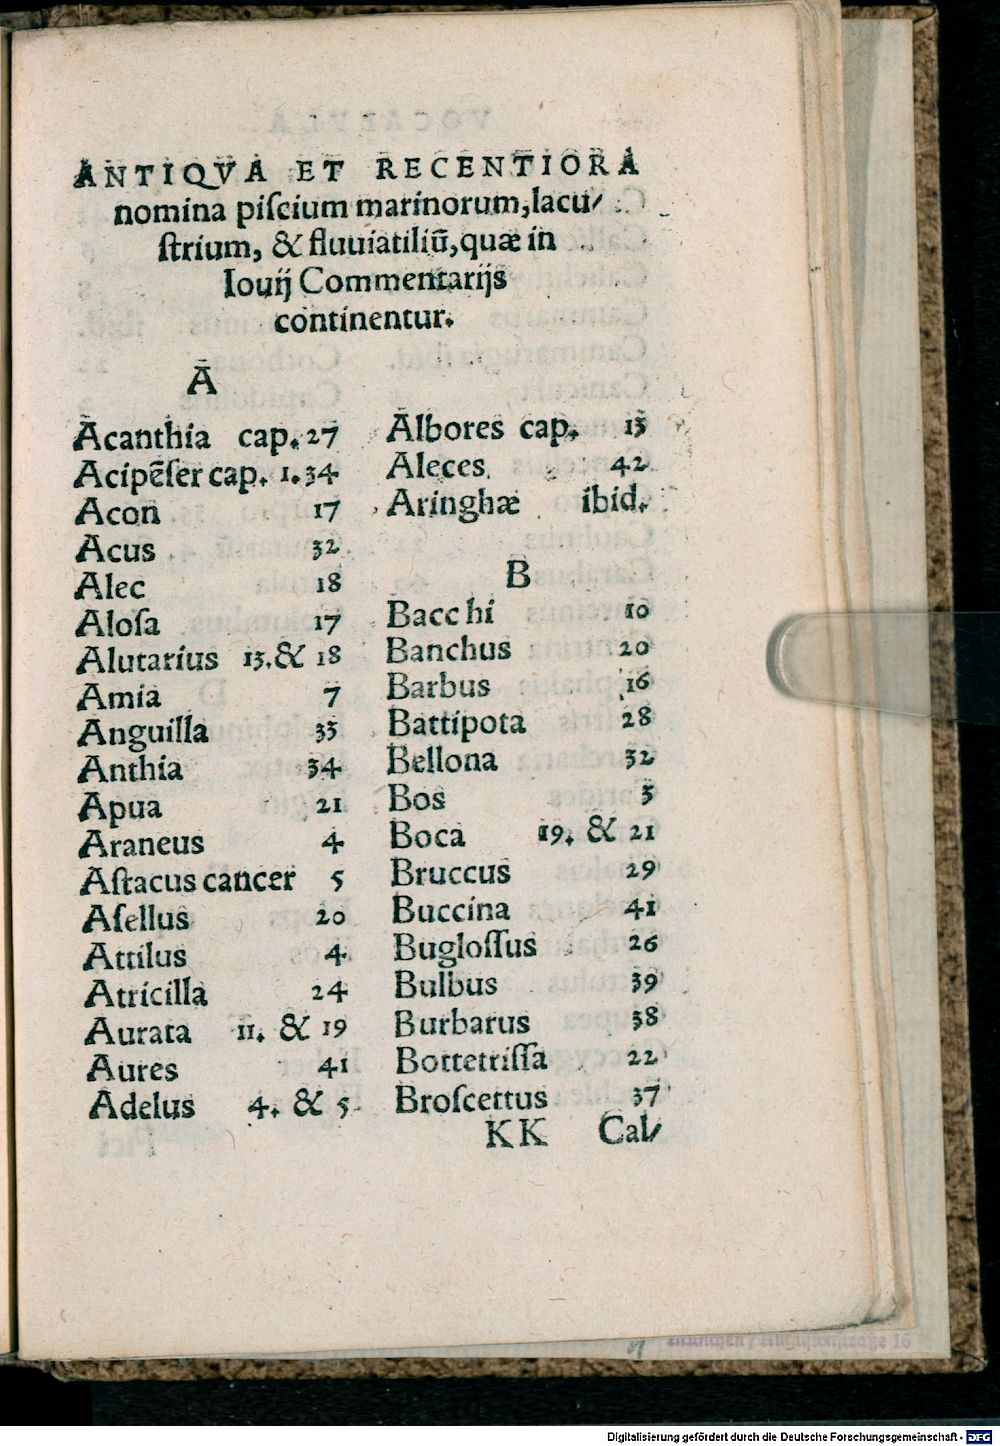 ANTIQVA ET RECENTIORA
nomina piſcium marinorum, lacu⸗
ſtrium, & fluuiatiliū, quæ in
Iouij Commentarijs
continentur.
A
Acanthia cap. 27
Acipēſer cap. 1. 34
Acon 17
Acus 32
Alec 18
Aloſa 17
Alutarius 15. & 18
Amia 7
Anguilla 35
Anthia 34
Apua 21
Araneus 4
Aſtacus cancer 5
Aſellus 20
Attilus 4
Atricilla 24
Aurata 11. & 19
Aures 41
Adelus 4. & 5
Albores cap. 15
Aleces 42
Aringhæ ibid.
B
Bacchi 10
Banchus 20
Barbus 16
Battipota 28
Bellona 32
Bos 3
Boca 19. & 21
Bruccus 29
Buccina 41
Bugloſſus 26
Bulbus 39
Burbarus 38
Bottetriſſa 22
Broſcettus 37
KK Cal⸗
Digitalisierung gefördert durch die Deutsche Forschungsgemeinschaft - DFG